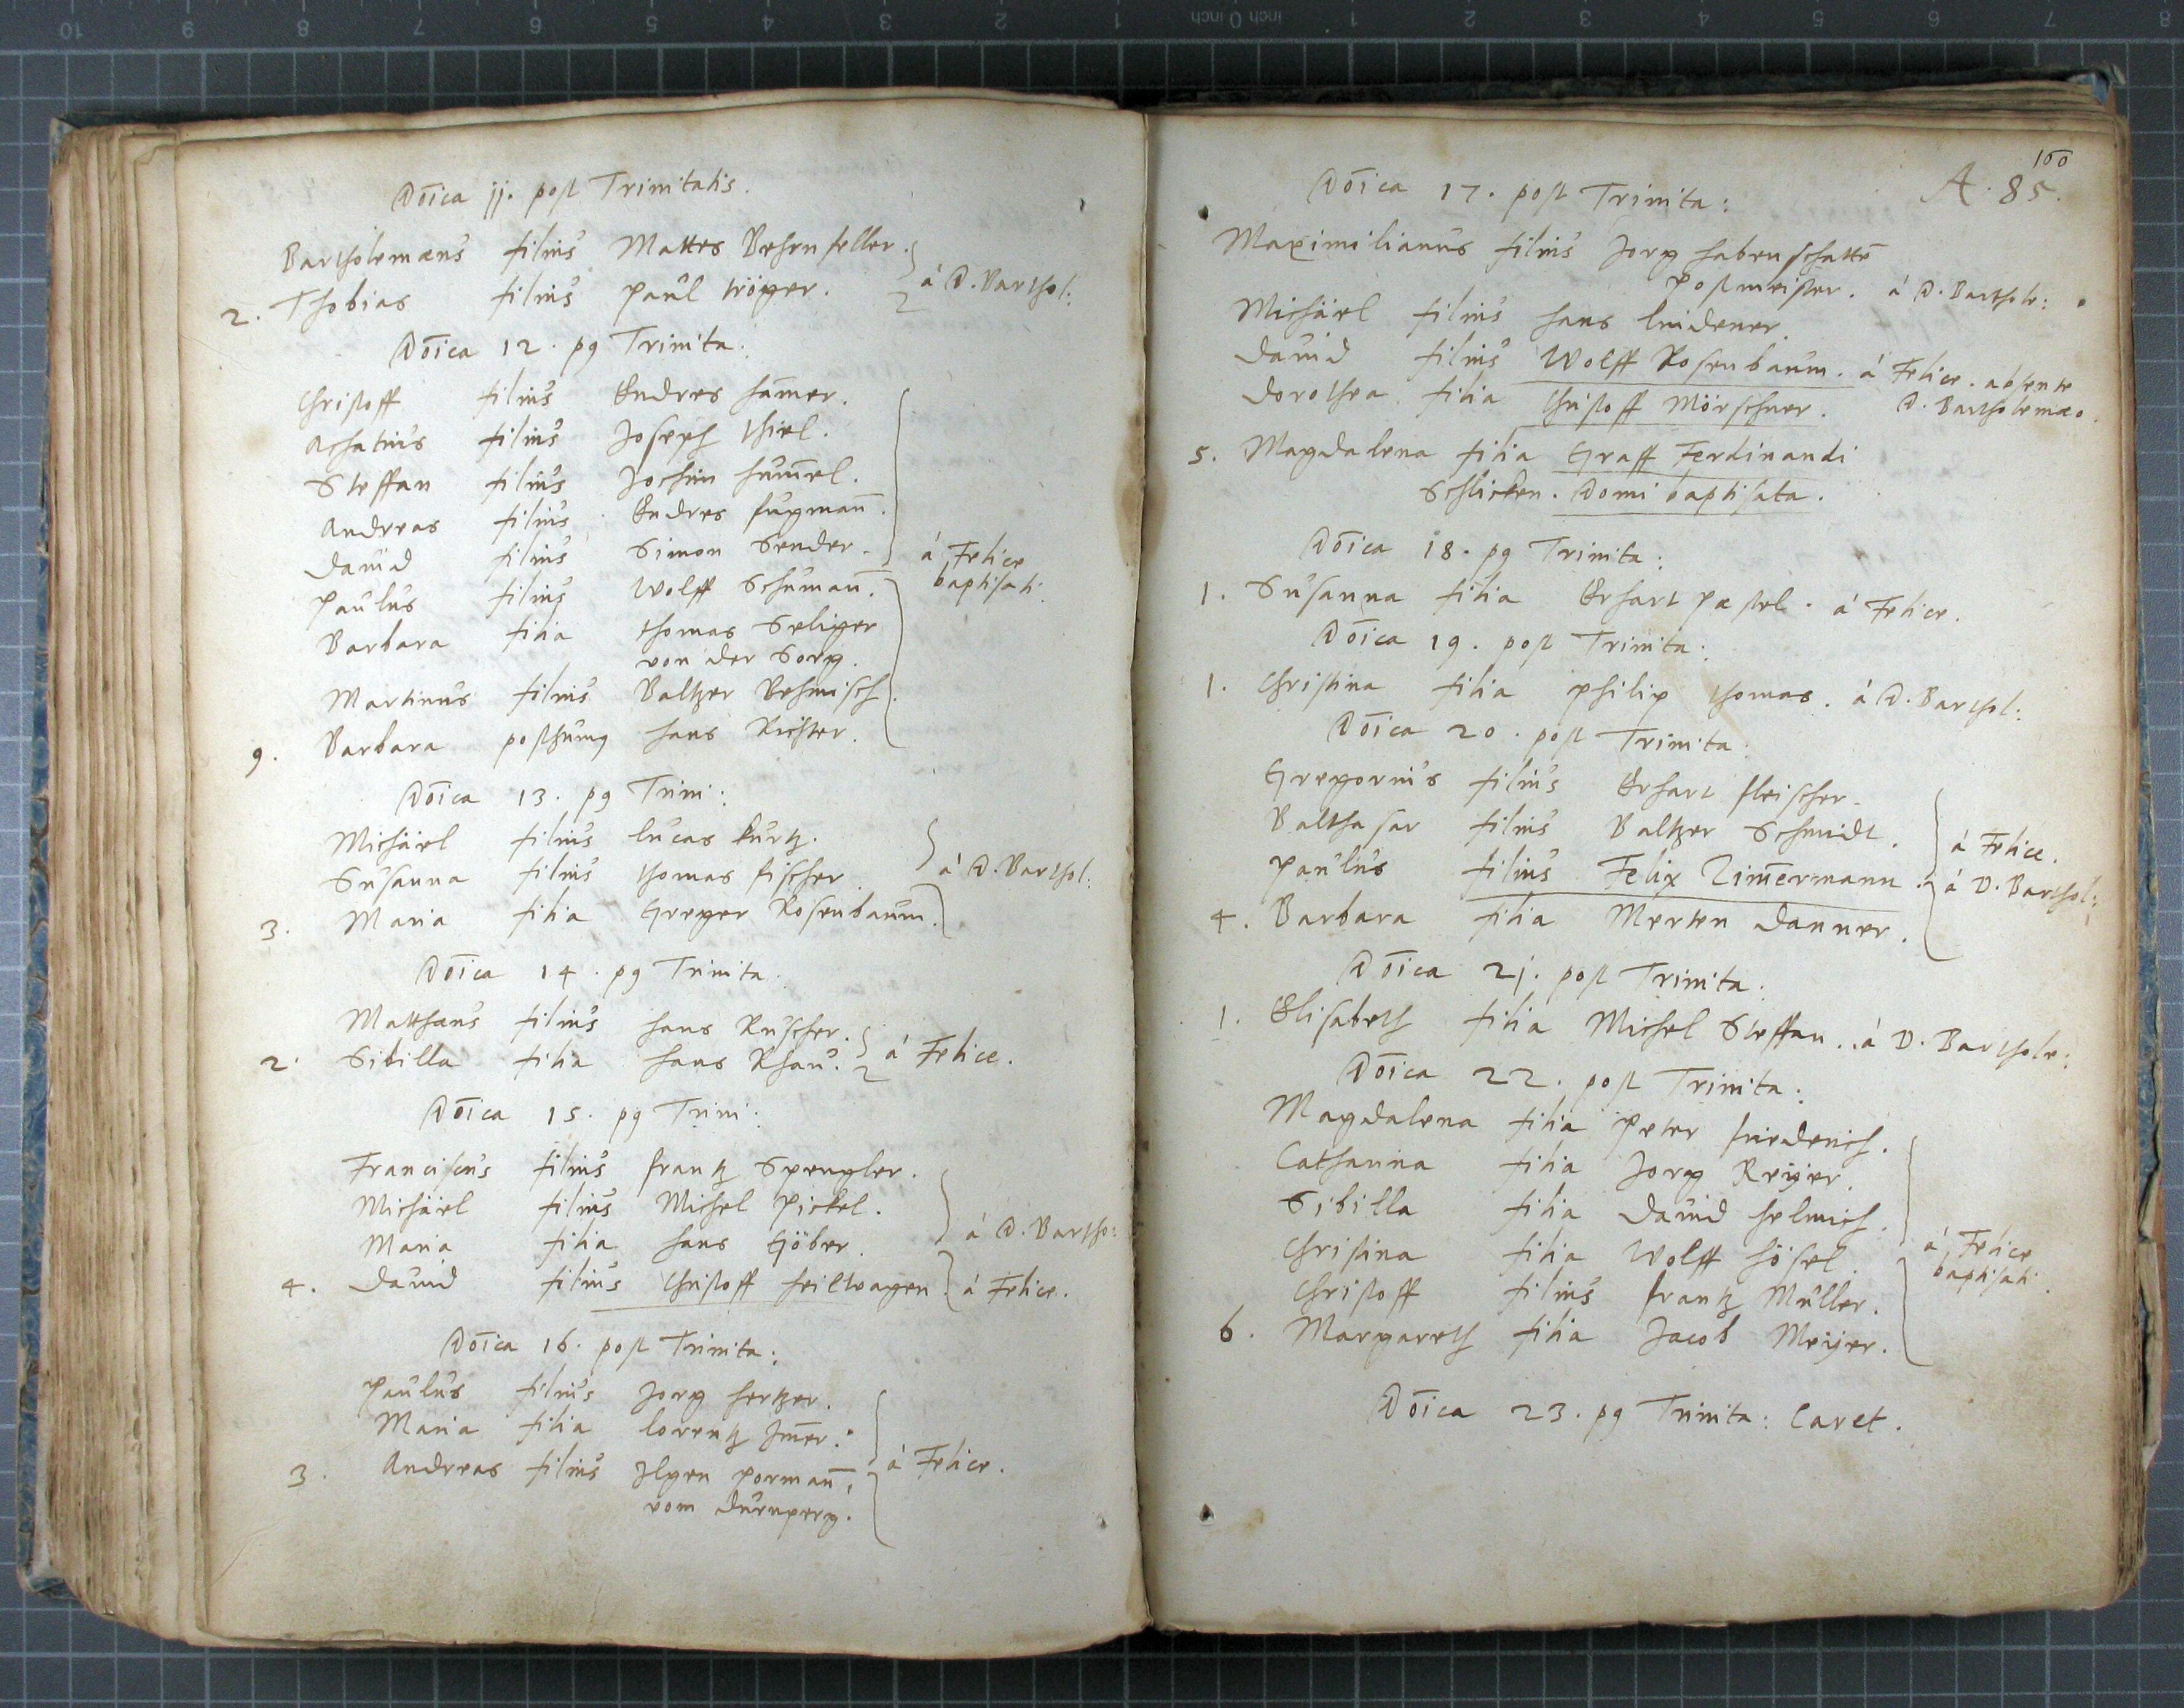 Dōīca jj. post Trinitatis.
Bartholemæus filius Mattes Behrnfeller.
2. Thobias filius Paul tröger. á D. Barthol:
Dōīca 12. pg Trinita:
Christoff filius Endres ham̄er.
Achatius filius Joseph thiel.
Steffan filius Jochim hum̄el.
Andreas filius Endres fugman̄.
David filius Simon Sender.
Paulus filius Wolff Schuman̄. á Felice baptisati.
Barbara filia thomas Seliger
von der Sorg.
Martinus filius Baltzer Behmisch.
9. Barbara posthumg hans Richter.
Dōīca 13. pg Trini:
Michäel filius lucas kurtz.
Susanna filius thomas fischer. á D. Barthol:
3. Maria filia Greger Rosenbaum.
Dōīca 14. pg Trinita.
Matthæus filius hans Ruscher.
2. Sibilla filia hans Khau. á Felice.
Dōīca 15. pg Trini:
Franciscus filius frantz Spengler.
Michäel filius Michel Pickel.
Maria filia hans Göber. á D. Bartho:
4. David filius Christoff heiltwagen á Felice.
Dōīca 16. post Trinita:
Paulus filius Jorg hertzer.
Maria filia lorentz Jm̄er.
3. Andreas filius Jlgen porman̄, á Felice.
vom durnperg.
100
A. 85.
Dōīca 17. post Trinita:
Maximilianus filius Jorg habenschattē
Postmeister. á D. Barthole:
Michäel filius hans lindener.
David filius Wolff Rosenbaum. á Felice. absente
Dorothea filia Christoff Mörschner. D. Bartholemæo.
5. Magdalena filia Graff Ferdinandi
Schlicken. Domi baptisata.
Dōīca 18. pg Trinita:
1. Susanna filia Erhart Pæstel. á Felice.
Dōīca 19. post Trinita:
1. Christina filia Philip thomas. á D. Barthol:
Dōīca 20. post Trinita:
Gregorius filius Erhart fleischer.
Balthasar filius Baltzer Schmidt. á Felice.
Paulus filius Felix Zim̄ermann. á D. Barthol:
4. Barbara filia Merten Danner.
Dōīca 2j. post Trinita.
1. Elisabeth filia Michel Steffan. á D. Barthole:
Dōīca 22. post Trinita:
Magdalena filia Peter friederich.
Catharina filia Jorg Reiger.
Sibilla filia David helmich.
Christina filia Wolff hösel. á Felice baptisati.
Christoff filius frantz Müller.
6. Margareth filia Jacob Meÿer.
Dōīca 23. pg Trinita: Caret.